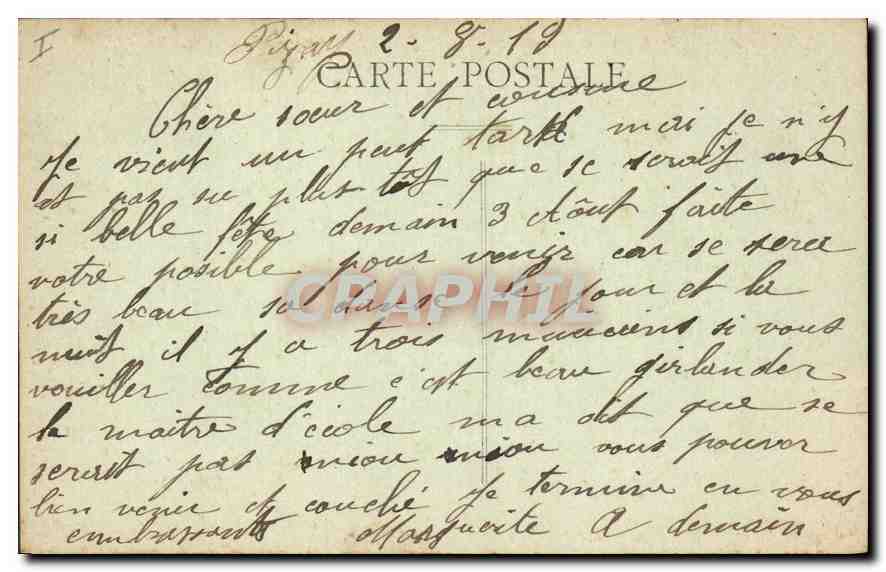 I
2-8-19
CARTE POSTALE
Chère sœur et cousine
Je vient un peut tard mai je n'y
et pas su plus tôt que se serait une
si belle fête demain 3 Aôut faite
votre posible pour venir car se sera
très beau sa danse le jour et la
CRAPHIL
nuit il y a trois musiciens si vous
vouiller comme c'est beau girlander
le maître d'école ma dit que se
serait pas miou miou vous pouvor
bien venir et couché Je termine en vous
embrassant Marguerite A demain